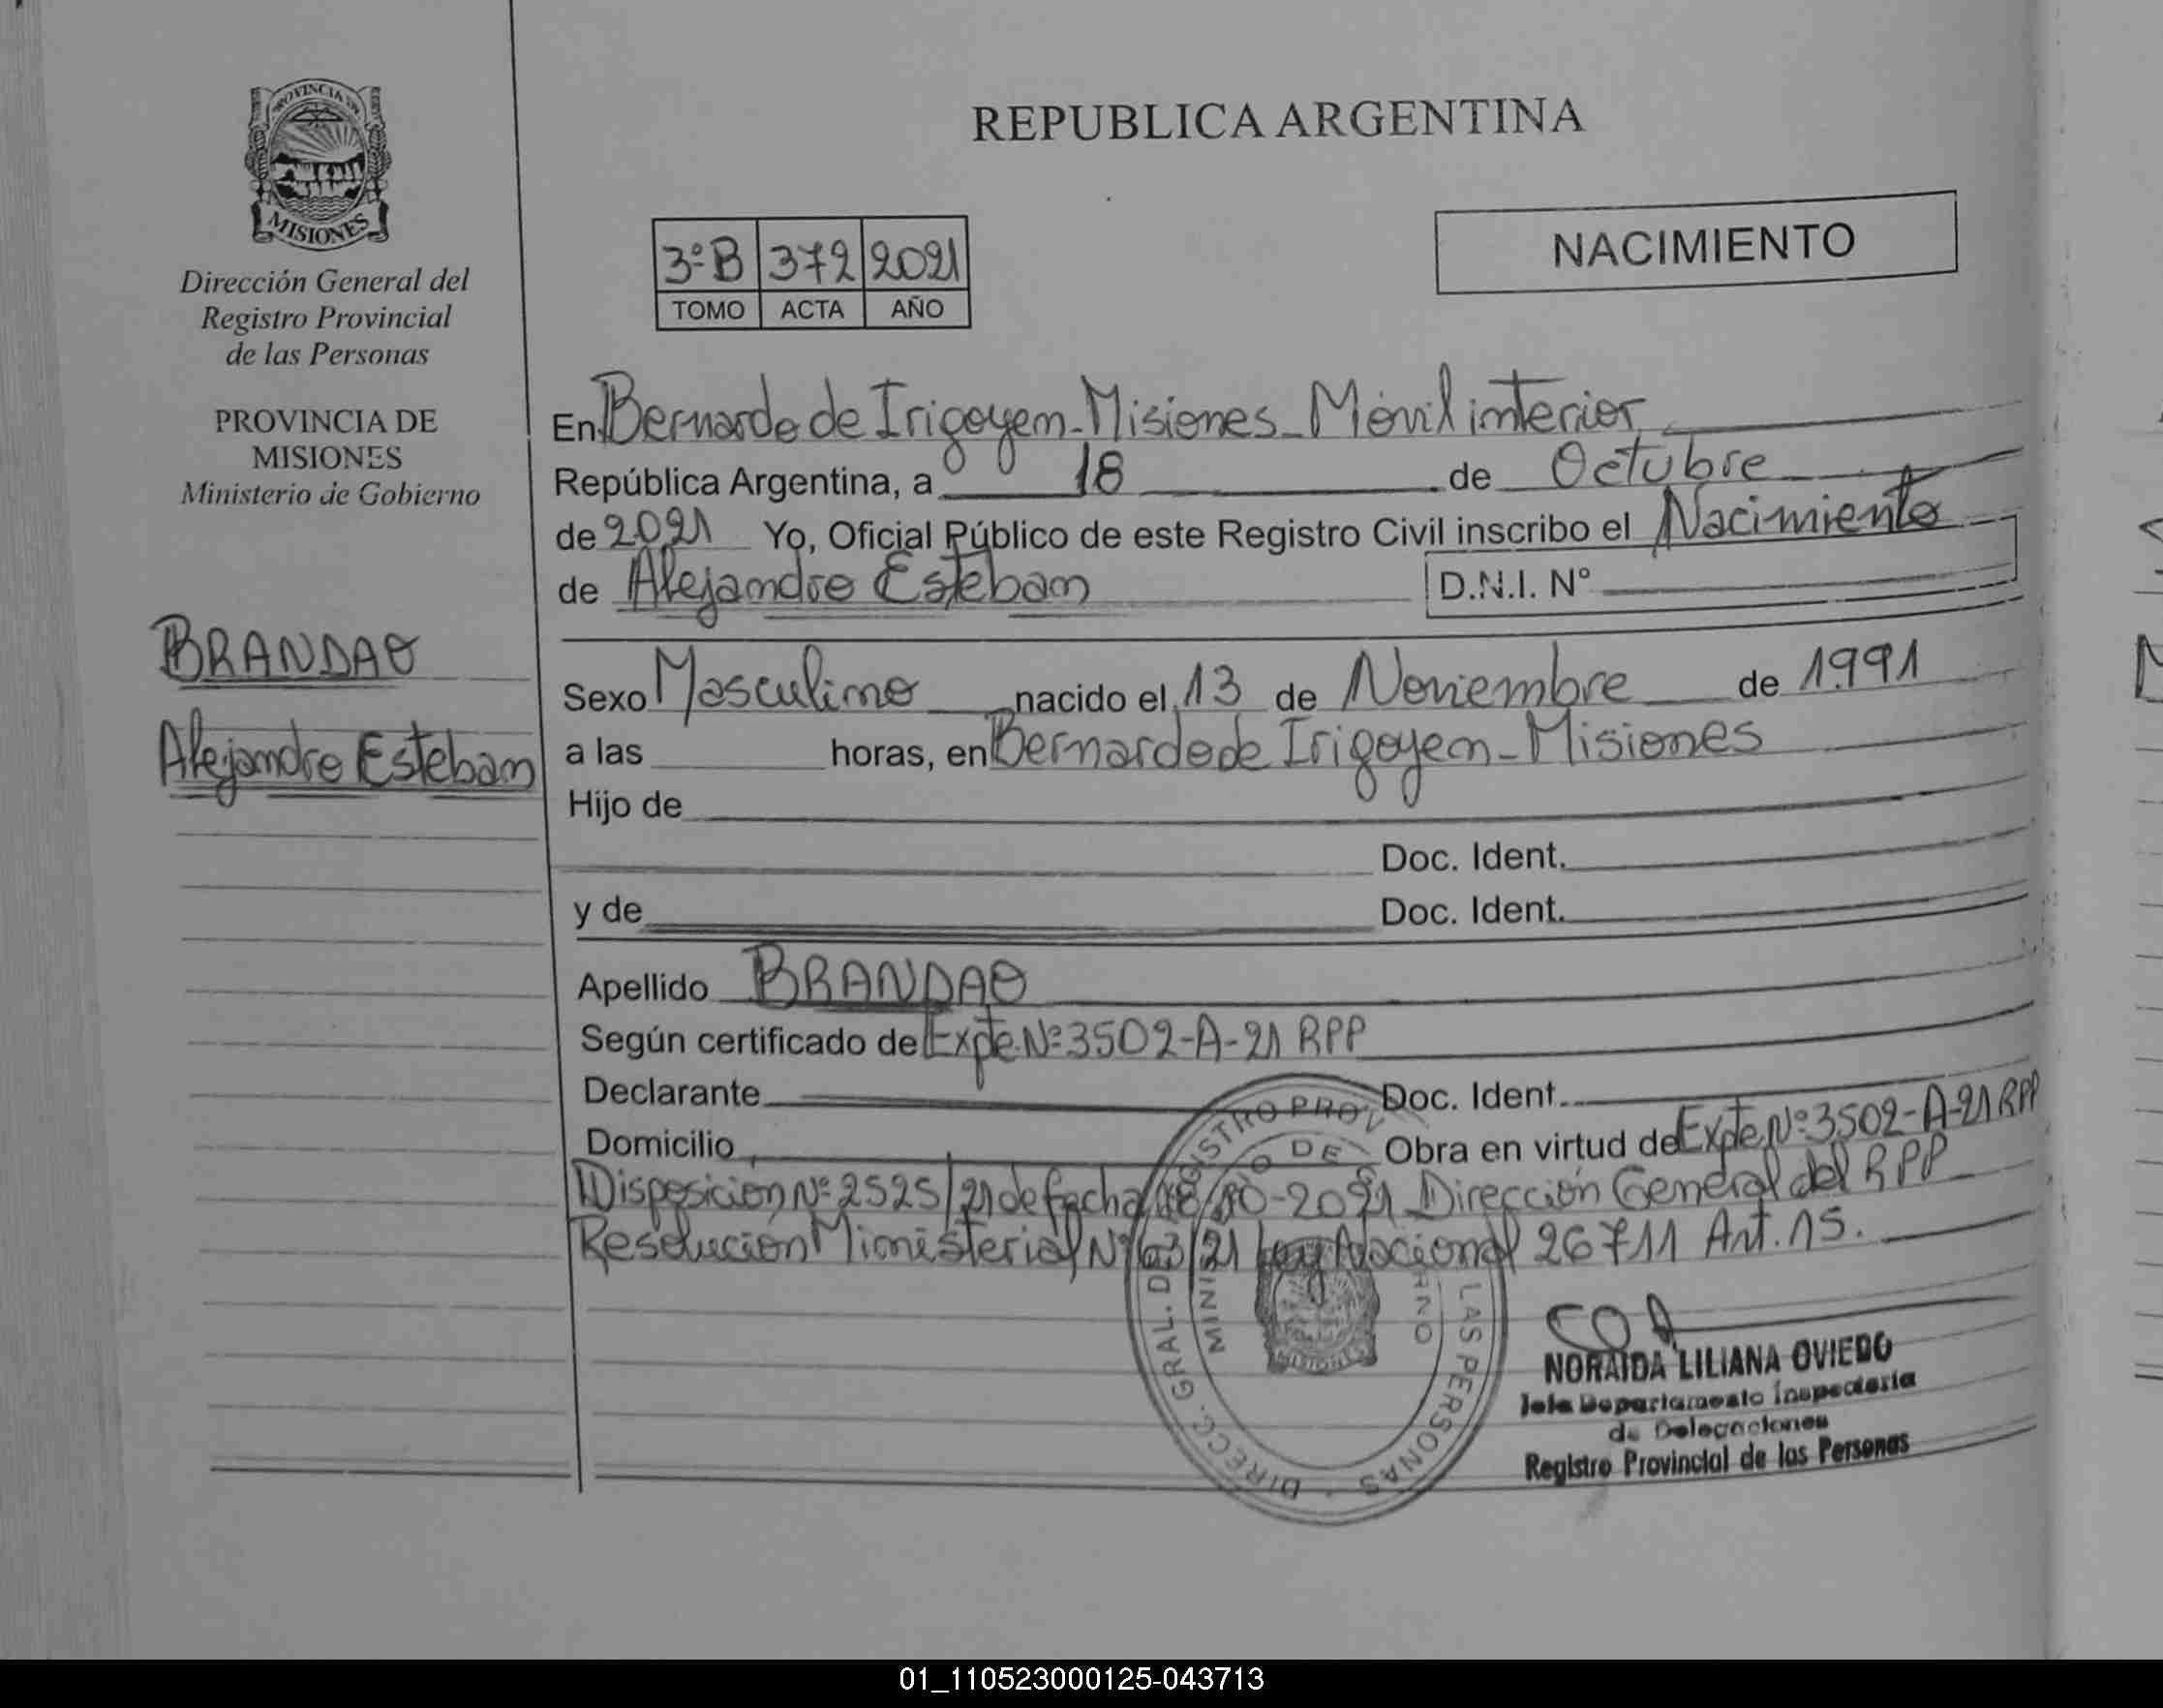 PROVINCIA DE
MISIONES
Dirección General del
Registro Provincial
de las Personas
PROVINCIA DE
MISIONES
Ministerio de Gobierno
BRANDAO
Alejandro Esteban
REPUBLICA ARGENTINA
3ºB 372 2021
TOMO ACTA AÑO
NACIMIENTO
En Bernardo de Irigoyen-Misiones-Móvil interior
República Argentina, a 18 de Octubre
de 2021 Yo, Oficial Público de este Registro Civil inscribo el Nacimiento
de Alejandro Esteban D.N.I. N°
Sexo Masculino nacido el 13 de Noviembre de 1991
a las horas, en Bernardo de Irigoyen-Misiones
Hijo de
Doc. Ident.
y de Doc. Ident.
Apellido BRANDAO
Según certificado de Expte. Nº 3502-A-21 RPP
Declarante Doc. Ident.
Domicilio Obra en virtud de Expte. Nº 3502-A-21 RPP
Disposición Nº 2525/21 de fecha 18/10-2021 Dirección General del RPP
Resolución Ministerial Nº 63/21 Ley Nacional 26711 Art. 15.
DIRECC. GRAL. D REGISTRO PROV LAS PERSONAS
MINI IO DE RNO
MISIONES
NORAIDA LILIANA OVIEDO
Jefe Departamento Inspectoría
de Delegaciones
Registro Provincial de las Personas
01_110523000125-043713